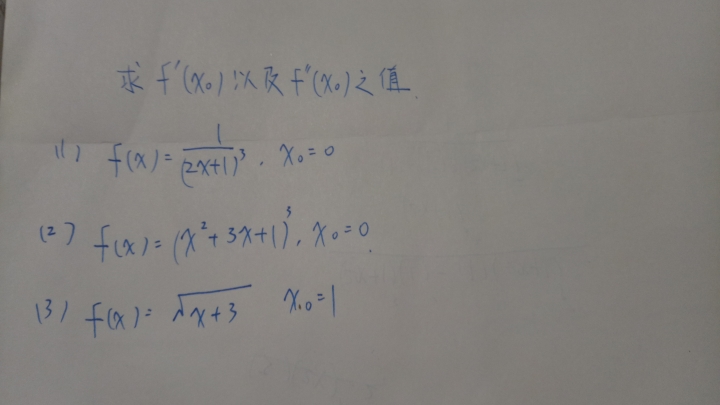 求 f'(x₀) 以及 f"(x₀) 之值.
(1) f(x) = 1/(2x+1)³ . x₀ = 0
(2) f(x) = (x²+3x+1)³, x₀ = 0.
(3) f(x) = √(x+3) x₀ = 1